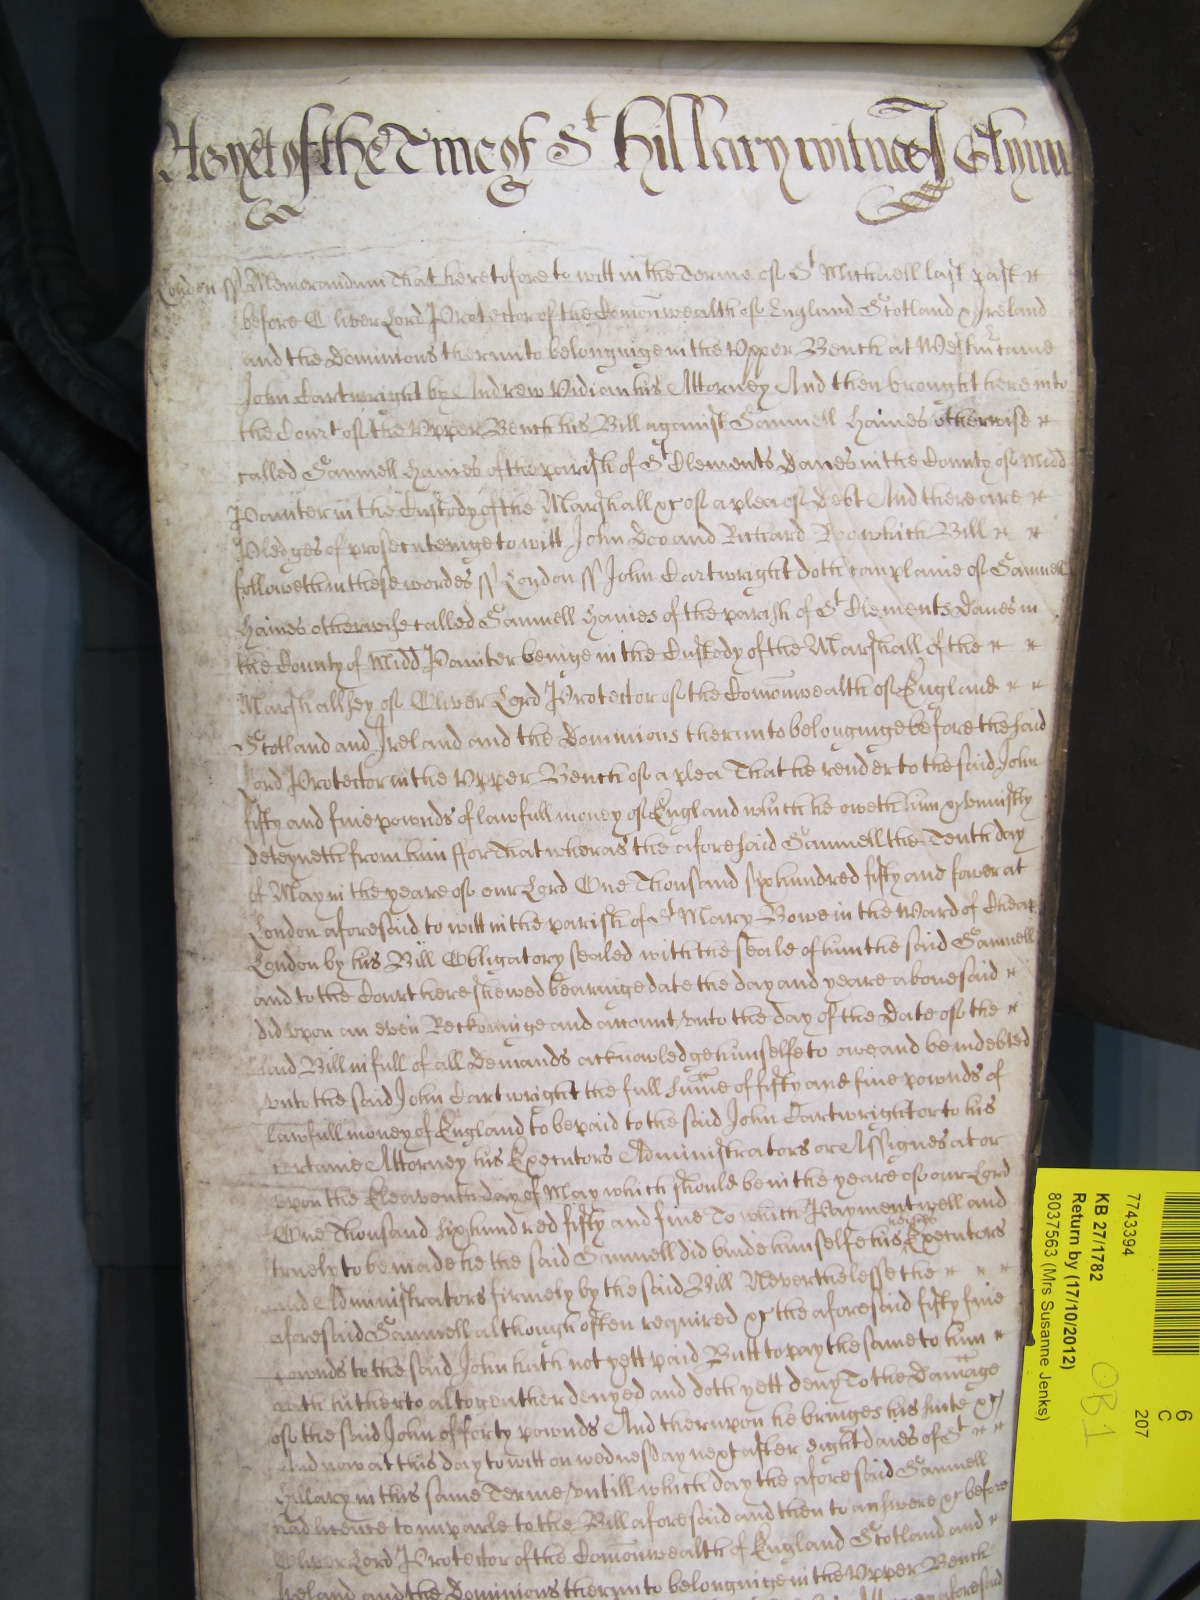 As yet of the Tme of St Hillary witnes J Glynn
London ss Memorandum That heretofore to witt in the Terme of St Michaell last past
before Oliver Lord Protector of the Comonwealth of England Scotland & Ireland
and the Dominions therunto belonginge in the Vpper Bench at Westm came
John Cartwright by Andrew Vidian his Attorney And then brought here into
the Court of the Vpper Bench his Bill against Samuell Haines otherwise
called Samuell Haines of the parish of St Clements Danes in the County of Midd
Painter in the Custody of the Marshall &c of a plea of Debt And there are
Pledges of prosecuteinge to witt John Doo and Richard Roo which Bill
followeth in these wordes ss London ss John Cartwright doth complaine of Samuell
Haines otherwise called Samuell Haines of the parish of St Clements Danes in
the County of Midd Painter beinge in the Custody of the Marshall of the
Marshallsey of Oliver Lord Protector of the Comonwealth of England
Scotland and Ireland and the Dominions therunto belonginge before the said
Lord Protector in the Vpper Bench of a plea That he render to the said John
fifty and five pownds of lawfull money of England which he oweth him & vniustly
deteyneth from him ffor That wheras the aforesaid Samuell the Tenth day
of May in the yeare of our Lord One Thousand six hundred fifty and fower at
London aforesaid to witt in the parish of St Mary Bowe in the Ward of Cheap
London by his Bill Obligatory sealed with the seale of him the said Samuell
and to the Court here shewed beareinge date the day and yeare abouesaid
did vpon an even Reckoninge and account vnto the day of the Date of the
said Bill in full of all Demands acknowledge himselfe to owe and be indebted
vnto the said John Cartwright the full sume of fifty and five pownds of
lawfull money of England to be paid to the said John Cartwright or to his
certaine Attorney his Executors Administrators or Assignes at or
vpon the Eleaventh day of May which should be in the yeare of our Lord
One Thousand six hundred fifty and five To which Payment well and
truely to be made he the said Samuell did binde himselfe his heires Executors
and Administrators firmely by the said Bill Neverthelesse the
aforesaid Samuell although often required &c the aforesaid fifty five
pownds to the said John hath not yett paid Butt to pay the same to him
hath hitherto altogeather denyed and doth yett deny To the Damage
of the said John of forty pownds And therupon he bringes his suite &c
And now at this day to witt on wednesday next after eight daies of St
Hillary in this same Terme vntill which day the aforesaid Samuell
had licence to imparle to the Bill aforesaid and then to answere &c before
Oliver Lord Protector of the Comonwealth of England Scotland and
Ireland and the Dominions therunto belonginge in the Vpper Bench
aforesaid
7743394
KB 27/1782
Return by (17/10/2012)
8037563 (Mrs Susanne Jenks)
6
C
207
OB1